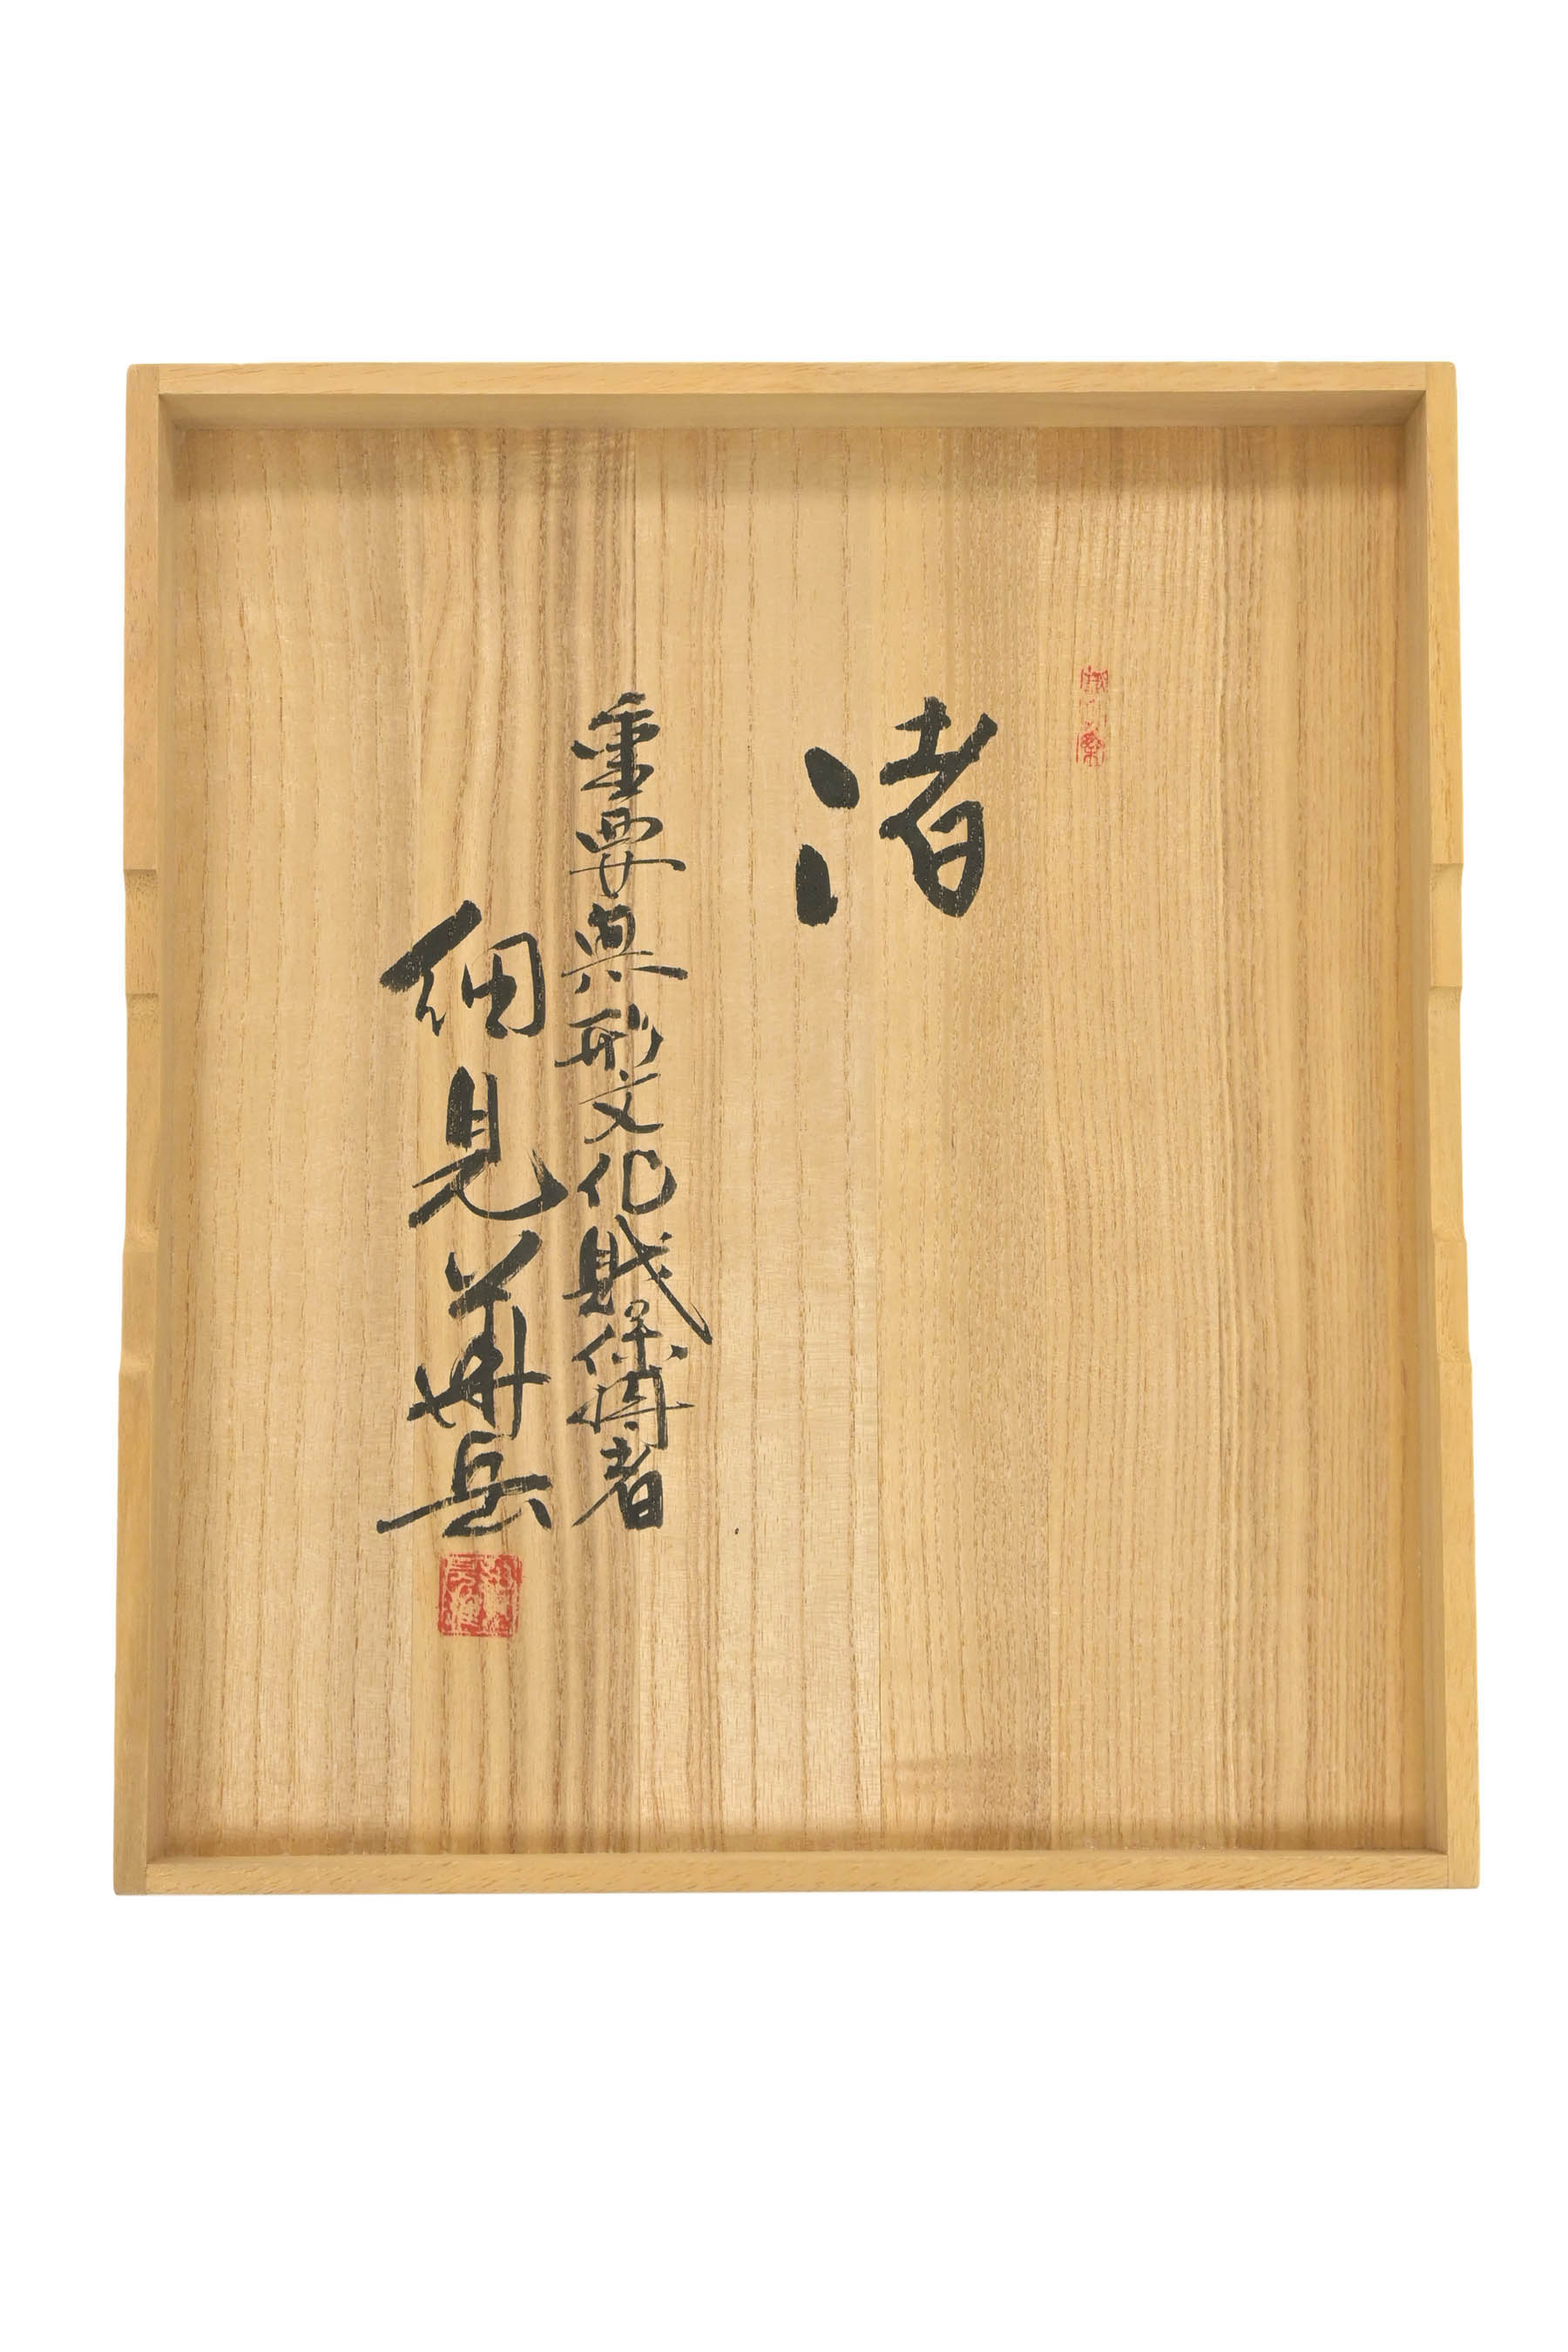 渚
重要無形文化財保持者
細見華岳